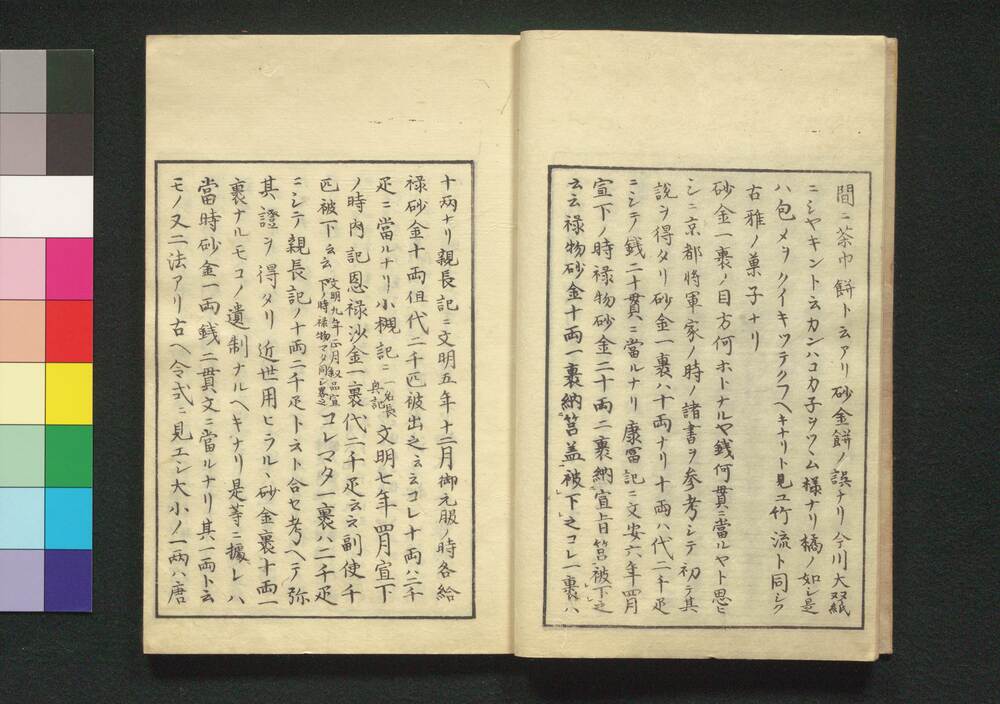 間ニ茶巾餅ト云アリ砂金餅ノ誤ナリ今川大双紙
ニシヤキント云カンハコカ子ヲツヽム様ナリ橋ノ如シ是
ハ包メヲクイキツテクフヘキナリト見ユ竹流ト同シク
古雅ノ菓子ナリ
砂金一裹ノ目方何ホトナルヤ銭何貫ニ當ルヤト思ヒ
シニ京都将軍家ノ時ノ諸書ヲ参考シテ初テ其
説ヲ得タリ砂金一裹ハ十両ナリ十両ハ代二千疋
ニシテ銭二十貫ニ當ルナリ康冨記ニ文安六年四月
宣下ノ時禄物砂金二十両二裹納宣旨筥被下之
云云禄物砂金十両一裹納筥盖被下之コレ一裹ハ
十両ナリ親長記ニ文明五年十二月御元服ノ時各給
禄砂金十両但代二千匹被出之云云コレ十両ハ二千
疋ニ當ルナリ小槻記ニ一名長興記文明七年四月宣下
ノ時内記恩禄沙金一裹代二千疋云云副使千
匹被下云云文明九年正月叙品宣下ノ時禄物マタ同シ畧之コレマタ一裹ハ二千疋
ニシテ親長記ノ十両二千疋ト云ト合セ考ヘテ弥
其證ヲ得タリ近世用ヒラルヽ砂金裹十両一
裹ナルモコノ遺制ナルヘキナリ是等ニ據レハ
當時砂金一両銭二貫文ニ當ルナリ其一両ト云
モノ又二法アリ古ヘ令式ニ見エシ大小ノ一両ハ唐